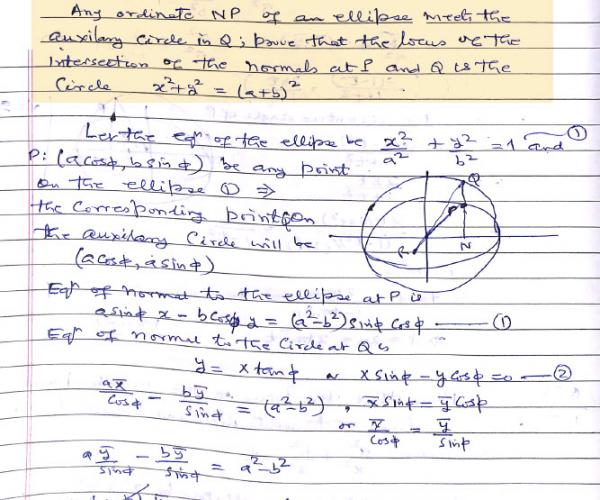 Any ordinate NP of an ellipse meets the
auxilary circle in Q; prove that the locus of the
intersection of the normals at P and Q is the
circle x²+y² = (a+b)²
Let the eqⁿ of the ellipse be x²/a² + y²/b² = 1 ① and
P: (acosφ, bsinφ) be any point
on the ellipse ① ⇒
the corresponding point Q on
the auxilary circle will be
(acosφ, asinφ)
Q
P
N
R
Eqⁿ of normal to the ellipse at P is
asinφ x − bcosφ y = (a²−b²) sinφ cosφ — ①
Eqⁿ of normal to the circle at Q is
y = x tanφ ~ x sinφ − y cosφ = 0 — ②
ax̄/cosφ − bȳ/sinφ = (a²−b²), x̄ sinφ = ȳ cosφ
or x̄/cosφ = ȳ/sinφ
aȳ/sinφ − bȳ/sinφ = a²−b²